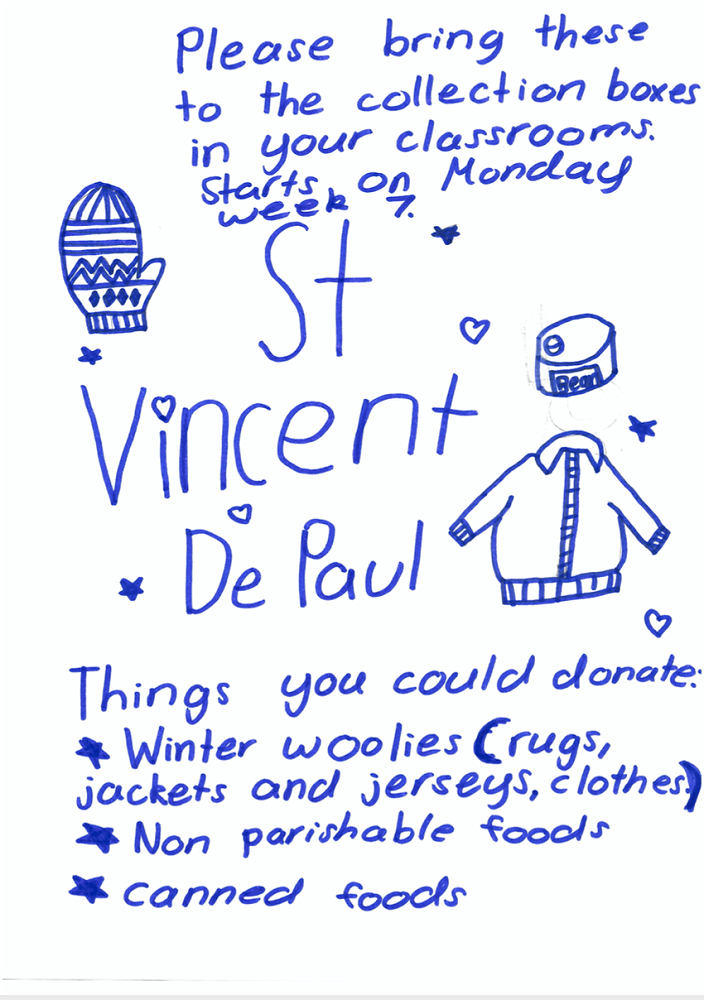 Please bring these
to the collection boxes
in your classrooms.
Starts on Monday
week 7.
St
Vincent
De Paul
Bean
Things you could donate:
Winter woolies (rugs,
jackets and jerseys, clothes.)
Non parishable foods
canned foods